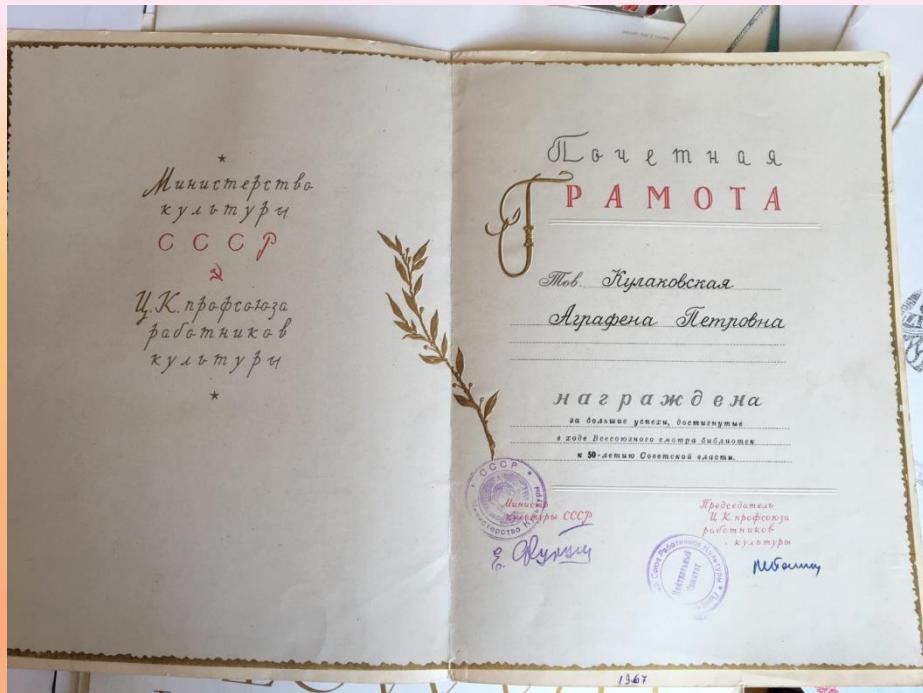 Министерство
культуры
СССР
Ц.К. профсоюза
работников
культуры
Почетная
ГРАМОТА
Тов. Кулаковская
Аграфена Петровна
награждена
за большие успехи, достигнутые
в ходе Всесоюзного смотра библиотек
к 50-летию Советской власти.
СССР
Министерство Культуры
Министр
культуры СССР
Председатель
Ц.К. профсоюза
работников
культуры
Союз Работников Культуры
Центральный
Комитет
1967